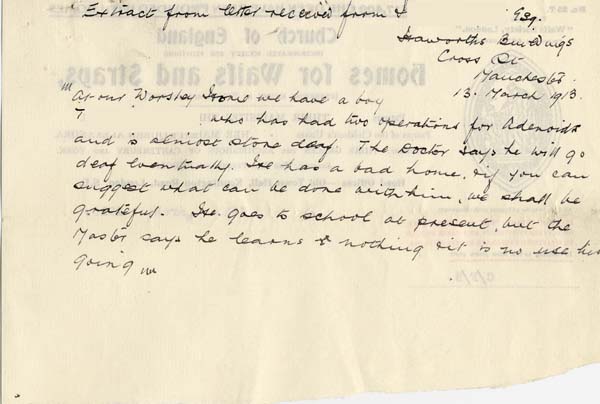 Extract from letter received from & Esq.
Haworth's Buildings
Cross St
Manchester.
13. March 1913.
"At our Worsley Home we have a boy
T who has had two operations for Adenoids
and is almost stone deaf. The Doctor says he will go
deaf eventually. He has a bad home, & if you can
suggest what can be done with him, we shall be
grateful. He goes to school at present, but the
Master says he learns nothing & it is no use his
going"
Church of England
Homes for Waifs and Strays